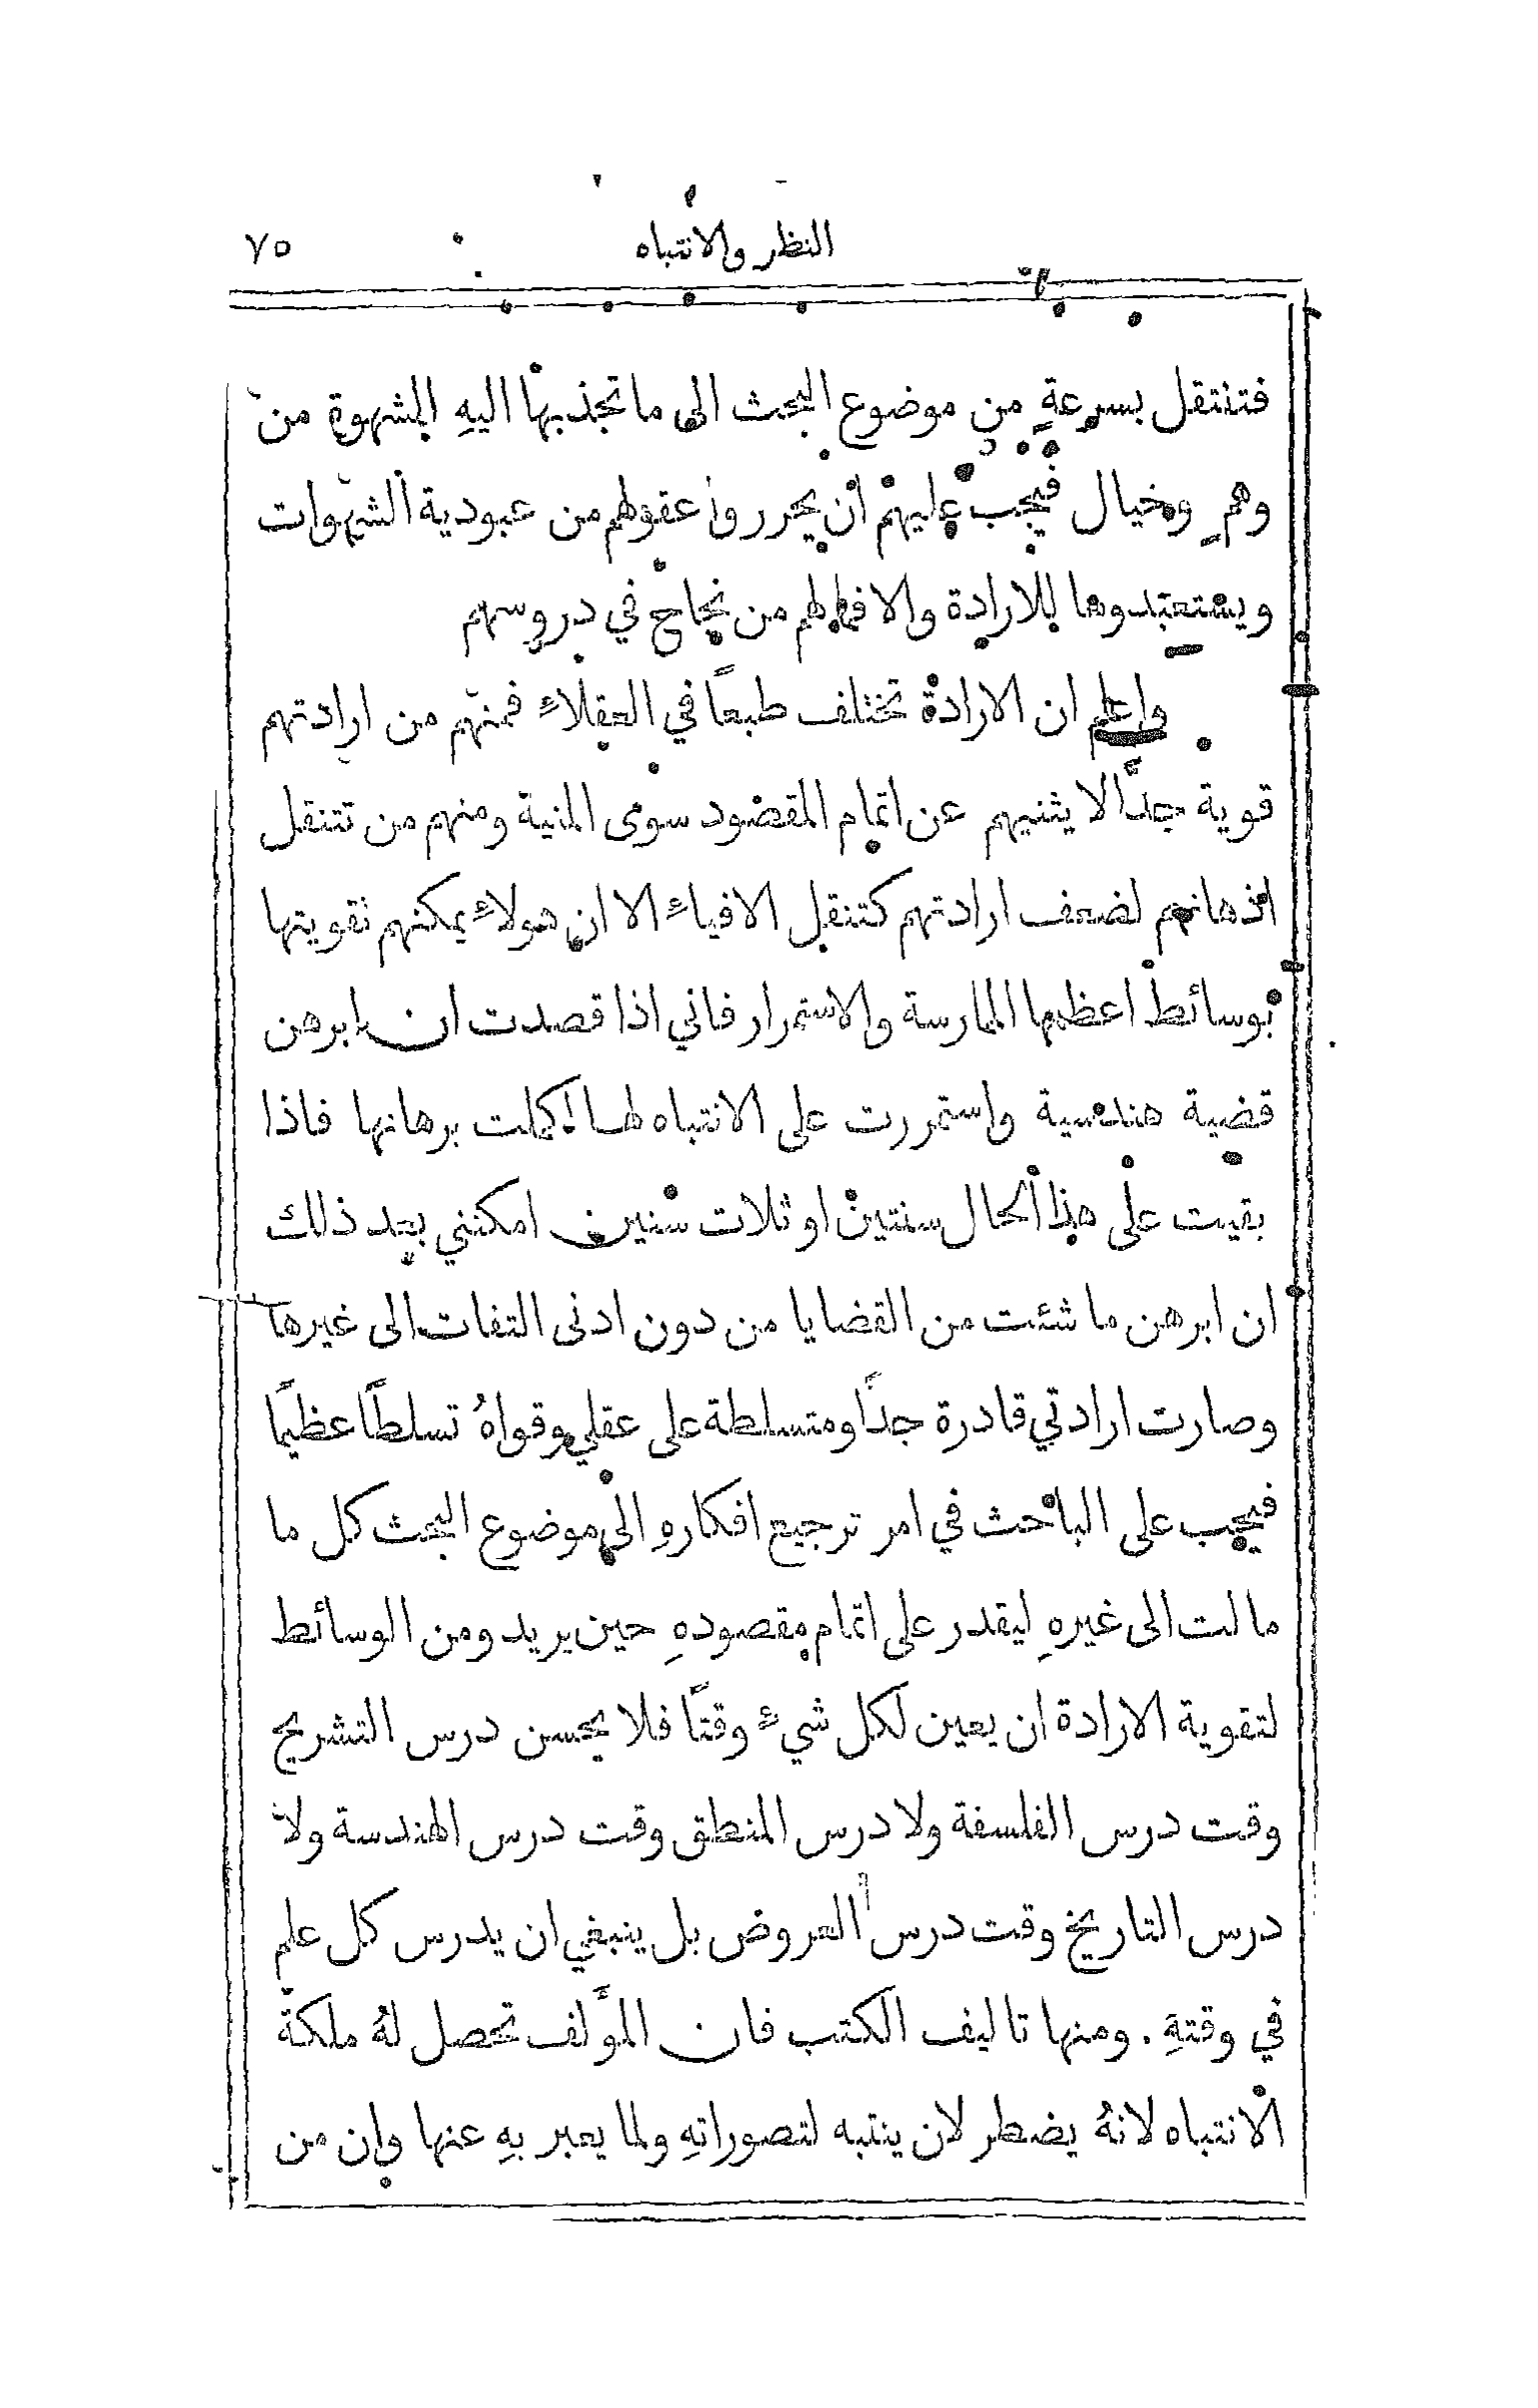 النظر والانتباه ٧٥
فتنتقل بسرعةٍ من موضوع البحث الى ما تجذبها اليهِ الشهوة من
وهمٍ وخيال فيجب عليهم ان يحرروا عقولهم من عبودية الشهوات
ويستعبدوها للارادة والا فما لهم من نجاح في دروسهم
واعلم ان الارادة تختلف طبعًا في العقلاءِ فمنهم من ارادتهم
قوية جدًّا لا يثنيهم عن اتمام المقصود سوى المنية ومنهم من تتنقل
اذهانهم لضعف ارادتهم كتنقل الافياءِ الا ان هولاءِ يمكنهم تقويتها
بوسائط اعظمها الممارسة والاستمرار فاني اذا قصدت ان ابرهن
قضية هندسية واستمررت على الانتباه لها اكملت برهانها فاذا
بقيت على هذا الحال سنتين او ثلاث سنين امكنني بعد ذلك
ان ابرهن ما شئت من القضايا من دون ادنى التفات الى غيرها
وصارت ارادتي قادرة جدًّا ومتسلطة على عقلي وقواهُ تسلطًا عظيمًا
فيجب على الباحث في امر ترجيع افكارهِ الى موضوع البحث كل ما
مالت الى غيرهِ ليقدر على اتمام مقصودهِ حين يريد ومن الوسائط
لتقوية الارادة ان يعين لكل شيءٍ وقتًا فلا يحسن درس التشريح
وقت درس الفلسفة ولا درس المنطق وقت درس الهندسة ولا
درس التاريخ وقت درس العروض بل ينبغي ان يدرس كل علم
في وقتهِ . ومنها تاليف الكتب فان المؤَلف تحصل لهُ ملكة
الانتباه لانهُ يضطر لان ينتبه لتصوراتهِ ولما يعبر بهِ عنها وان من